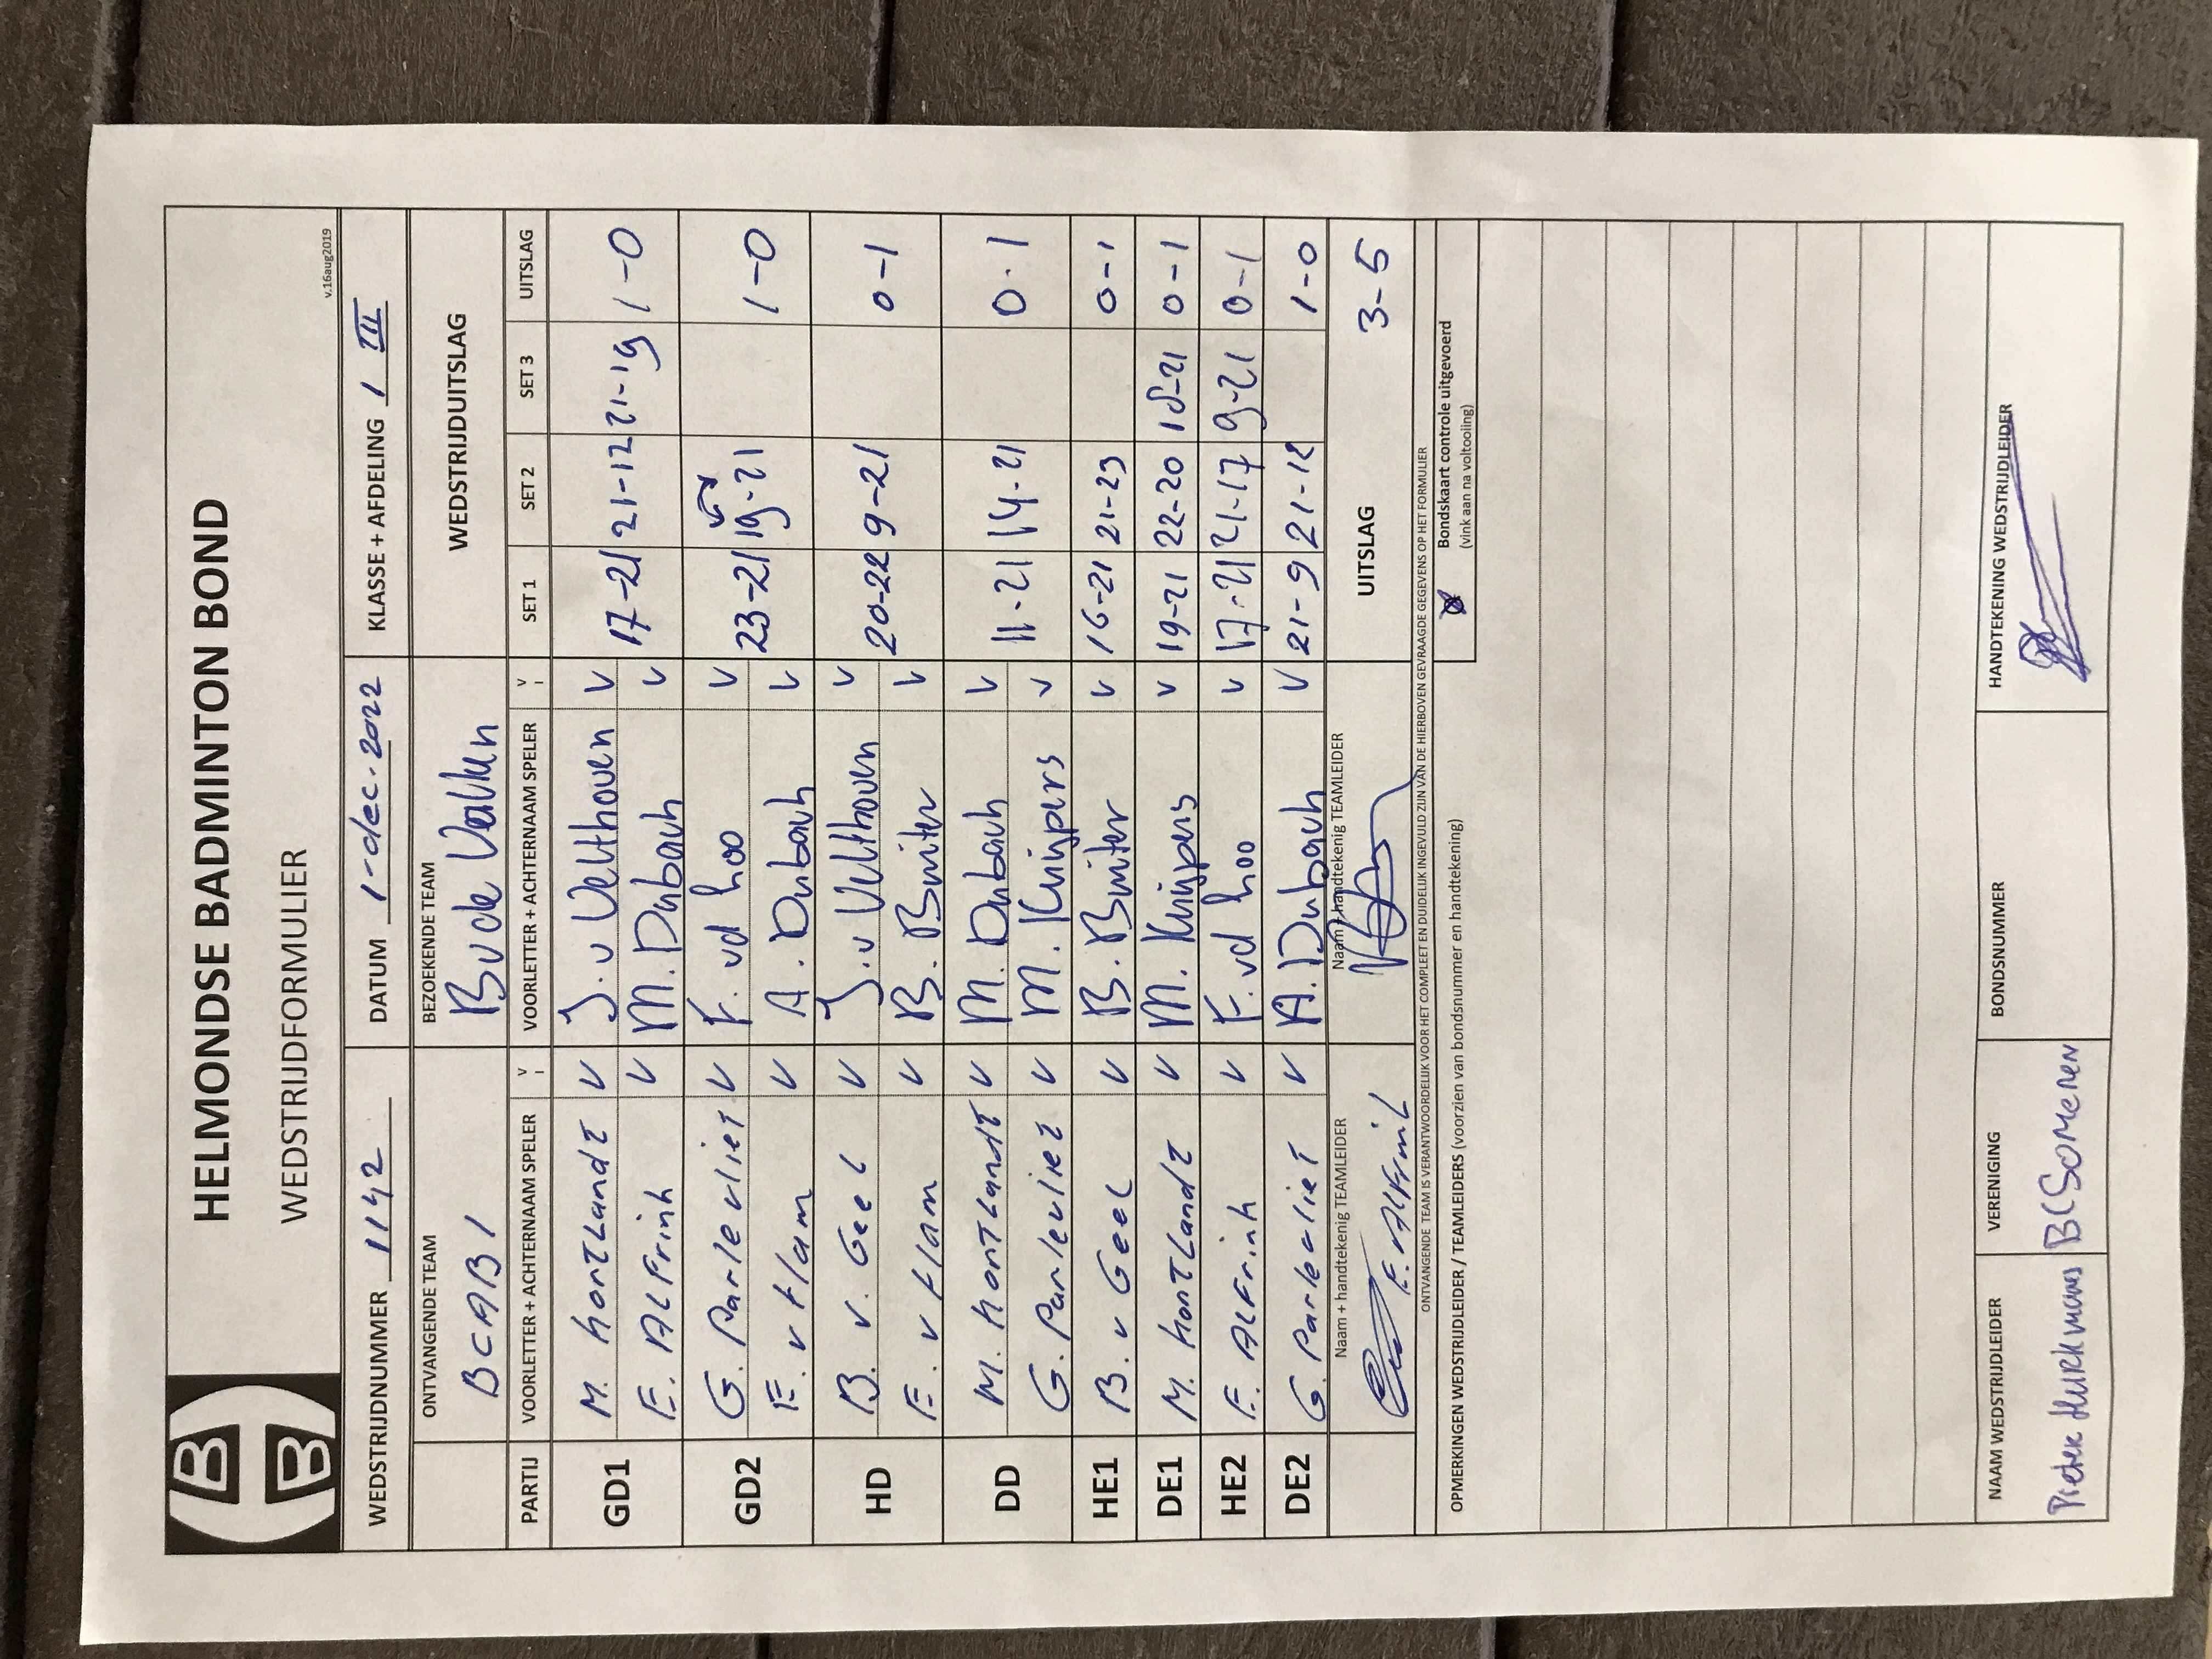 HELMONDSE BADMINTON BOND
WEDSTRIJDFORMULIER
v.16aug2019
WEDSTRIJDNUMMER 1142 DATUM 1-dec-2022 KLASSE + AFDELING 1 III
ONTVANGENDE TEAM BEZOEKENDE TEAM WEDSTRIJDUITSLAG
BCAB 1 BvdeVallen
PARTIJ VOORLETTER + ACHTERNAAM SPELER V VOORLETTER + ACHTERNAAM SPELER V SET 1 SET 2 SET 3 UITSLAG
GD1 M. KortLandt V J. v Velthoven V 17-21 21-12 21-19 1-0
E. ALFrink V M. Dubach V
GD2 G. Parlevliet V F. vd Loo V 23-21 19-21 1-0
E. v Flam V A. Dubach V
HD B. v. Geel V J. v Velthoven V 20-22 9-21 0-1
E. v Flam V B. Buiter V
DD M. KortLandt V M. Dubach V 11-21 14-21 0-1
G. Parlevliet V M. Kuijpers V
HE1 B. v Geel V B. Buiter V 16-21 21-23 0-1
DE1 M. KortLandt V M. Kuijpers V 19-21 22-20 18-21 0-1
HE2 E. ALFrink V F. vd Loo V 17-21 21-17 9-21 0-1
DE2 G. Parlevliet V A. Dubach V 21-9 21-12 1-0
Naam + handtekenig TEAMLEIDER Naam + handtekenig TEAMLEIDER UITSLAG 3-5
E. ALFrink
ONTVANGENDE TEAM IS VERANTWOORDELIJK VOOR HET COMPLEET EN DUIDELIJK INGEVULD ZIJN VAN DE HIERBOVEN GEVRAAGDE GEGEVENS OP HET FORMULIER
Bondskaart controle uitgevoerd
(vink aan na voltooiing)
OPMERKINGEN WEDSTRIJDLEIDER / TEAMLEIDERS (voorzien van bondsnummer en handtekening)
NAAM WEDSTRIJDLEIDER VERENIGING BONDSNUMMER HANDTEKENING WEDSTRIJDLEIDER
Pieter Hurkmans BCSomeren